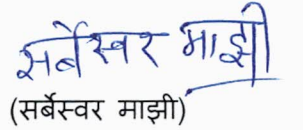 सर्बेस्वर माझी
(सर्बेस्वर माझी)